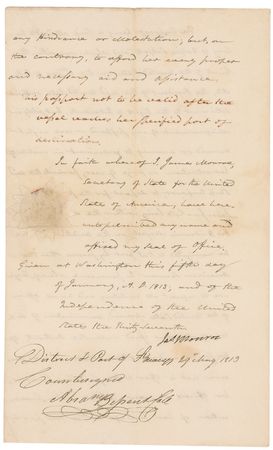 any hindrance or Molestation; but, on
the contrary, to afford her every proper
and necessary aid and assistance.
passport not to be valid after the
vessel reaches her specified port of
destination.
In faith whereof I, James Monroe,
Secretary of State for the United
State of America, have here-
unto subscribed my name and
affixed my seal of Office,
Given at Washington this fifth day
of January, A. D. 1813; and of the
Independence of the United
State the thirty seventh
Jas Monroe
District & Port of 1813
Countersigned
Abram